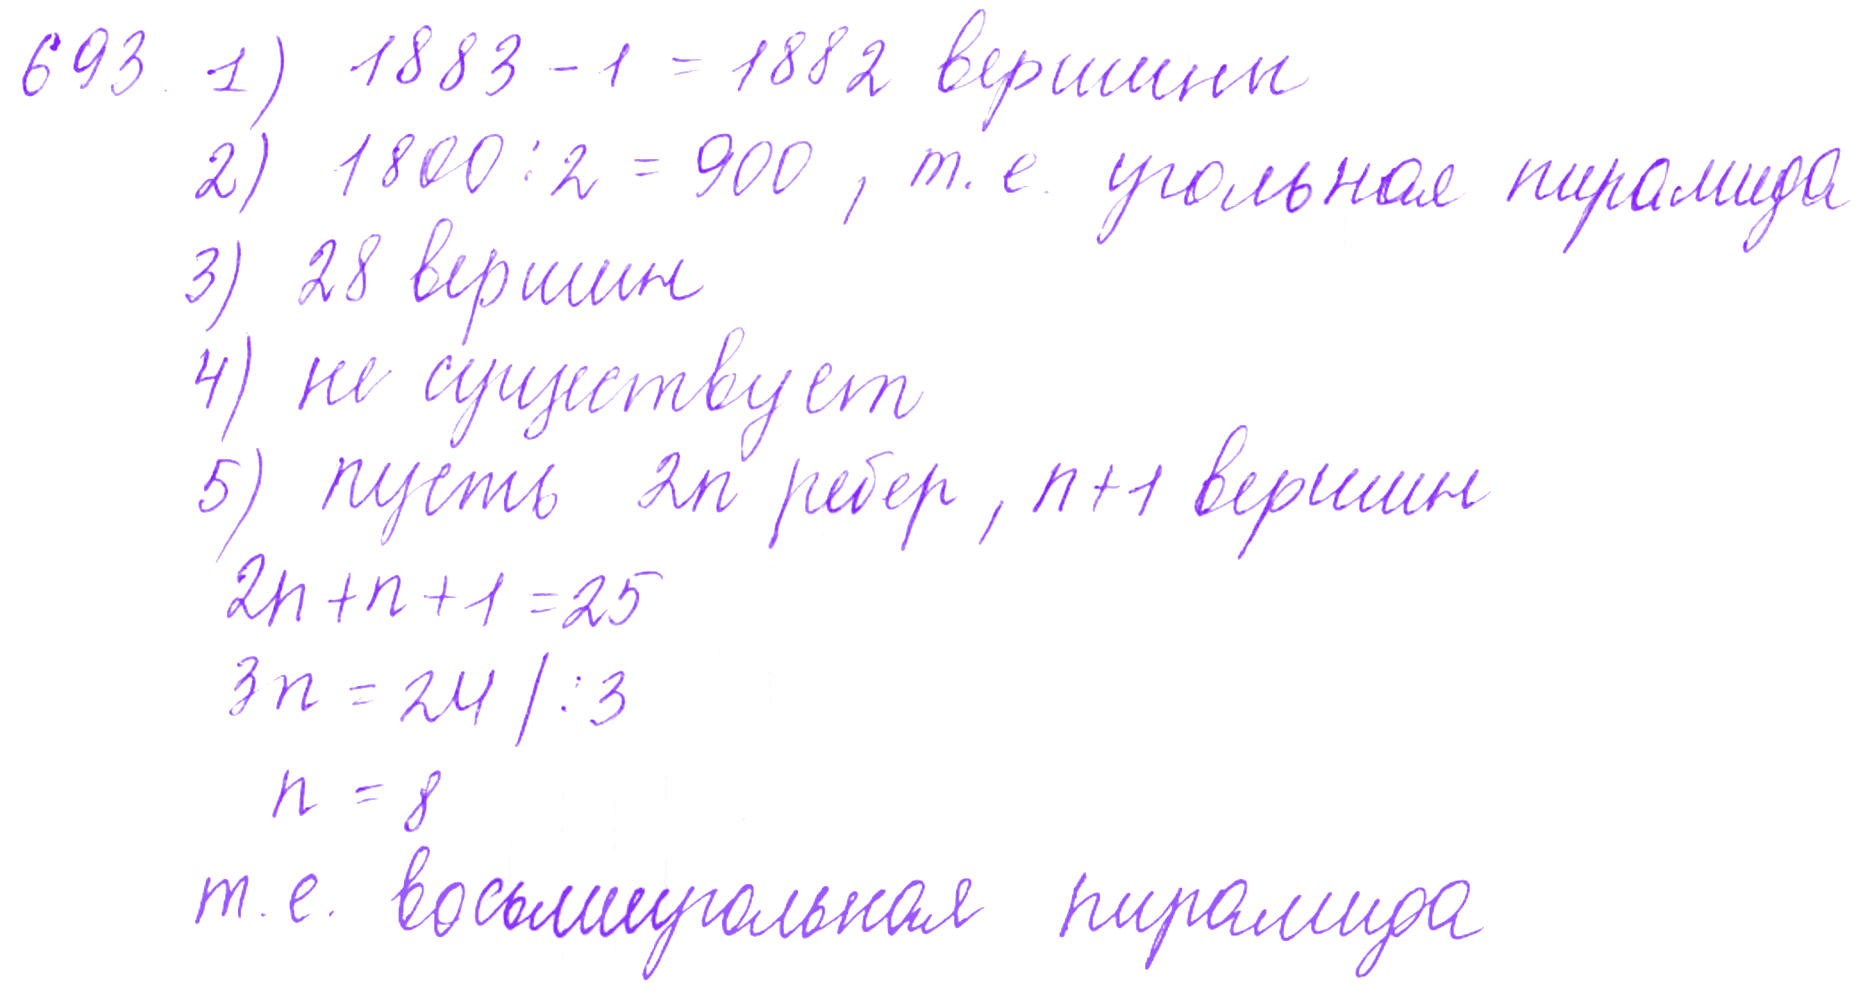 693. 1) 1883 - 1 = 1882 вершины
2) 1800 : 2 = 900, т.е. угольная пирамида
3) 28 вершин
4) не существует
5) пусть 2n ребер, n+1 вершин
2n + n + 1 = 25
3n = 24 | : 3
n = 8
т.е. восьмиугольная пирамида